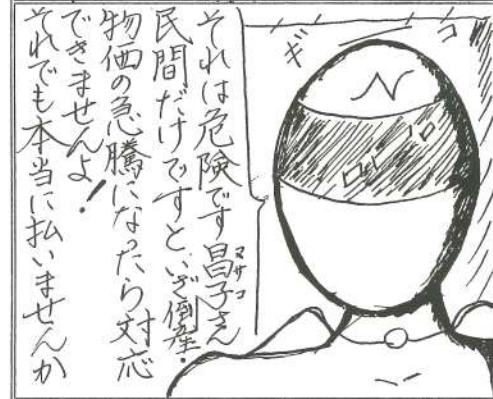 それは危険です昌子さん
マサコ
民間だけですといざ倒産・
物価の急騰になったら対応
できませんよ！
それでも本当に払いませんか
ギ
コ
N